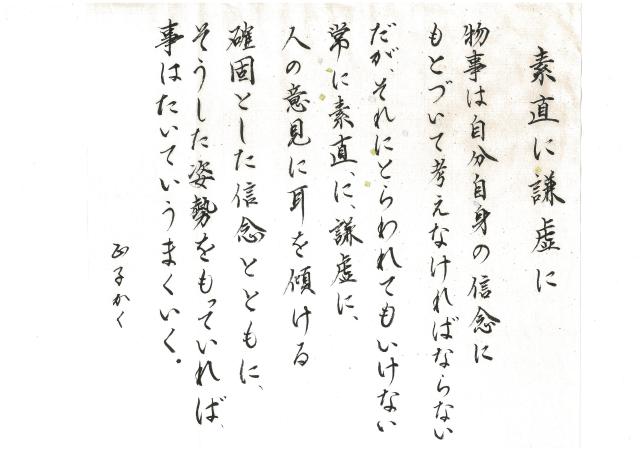 素直に謙虚に
物事は自分自身の信念に
もとづいて考えなければならない
だが、それにとらわれてもいけない
常に素直、に、謙虚に、
人の意見に耳を傾ける
確固とした信念とともに、
そうした姿勢をもっていれば、
事はたいていうまくいく。
正子かく